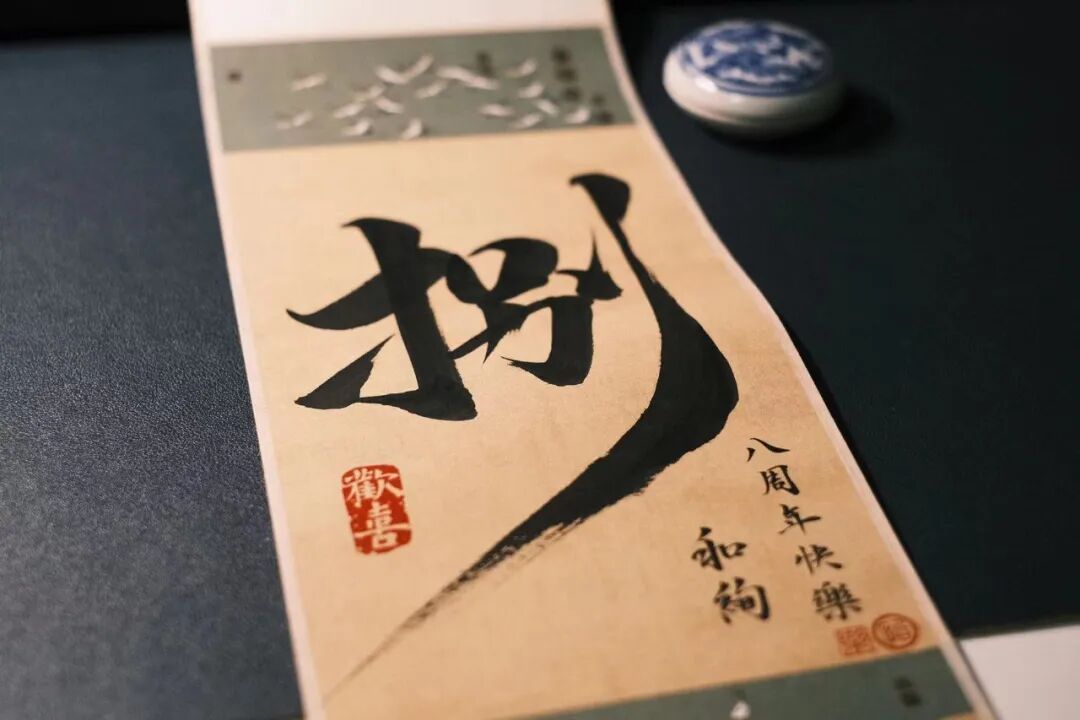 捌
八周年快樂
和絢
歡喜